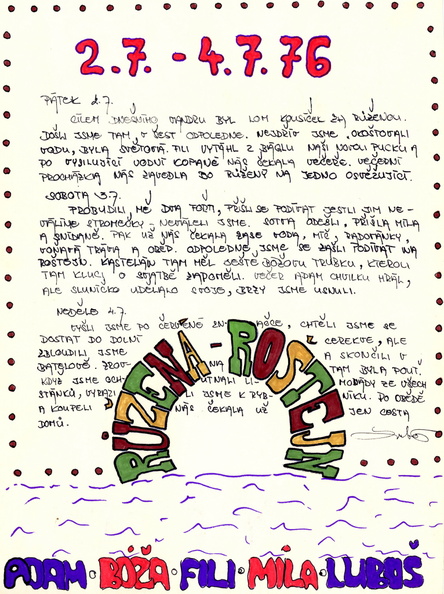 2.7. - 4.7.76
PÁTEK 2.7.
CÍLEM DNEŠNÍHO VANDRU BYL LOM KOUSÍČEK ZA RŮŽENOU.
DOŠLI JSME TAM V ŠEST ODPOLEDNE. NEJDŘÍV JSME OKOŠTOVALI
VODU, BYLA SVĚTOVÁ. FILI VYTÁHL Z BÁGLU NAŠI NOVOU PUCKU A
PO VYSILUJÍCÍ VODNÍ KOPANÉ NÁS ČEKALA VEČEŘE. VEČERNÍ
PROCHÁZKA NÁS ZAVEDLA DO RŮŽENÝ NA JEDNO OSVĚŽUJÍCÍ.
SOBOTA 3.7.
PROBUDILI MĚ DVA FOTŘI, PŘIŠLI SE PODÍVAT JESTLI JIM NE-
VÁLÍME STROMEČKY - NEVÁLELI JSME. FOTŘI ODEŠLI, PŘIŠLA MÍLA
A SNÍDANĚ. PAK UŽ NÁS ČEKALA ZASE VODA, MÍČ, RADOVÁNKY,
VOŇAVÁ TRÁVA A OBĚD. ODPOLEDNE JSME SE ZAŠLI PODÍVAT NA
ROŠTEJN. KASTELÁN TAM MĚL JEŠTĚ BÓŽOVU TRUBKU, KTEROU
TAM KLUCI O SVATBĚ ZAPOMĚLI. VEČER ADAM CHVILKU HRÁL,
ALE SLUNÍČKO UDĚLALO SVOJE, BRZY JSME USNULI.
NEDĚLE 4.7.
VYŠLI JSME PO ČERVENÉ ZN AČCE, CHTĚLI JSME SE
DOSTAT DO DOLNÍ CEREKVE, ALE
ZBLOUDILI JSME A SKONČILI V
BATELOVĚ. PROV NIA TAM BYLA POUŤ.
KDYŽ JSME OCH UTNALI LI MONÁDY ZE VŠECH
STÁNKŮ, VYRAZI LI JSME K RYB NÍKU. PO OBĚDĚ
A KOUPELI NÁS ČEKALA UŽ JEN CESTA
DOMŮ.
RUZENA - ROSTEJN
ADAM · BÓŽA · FILI · MÍLA · LUBOŠ